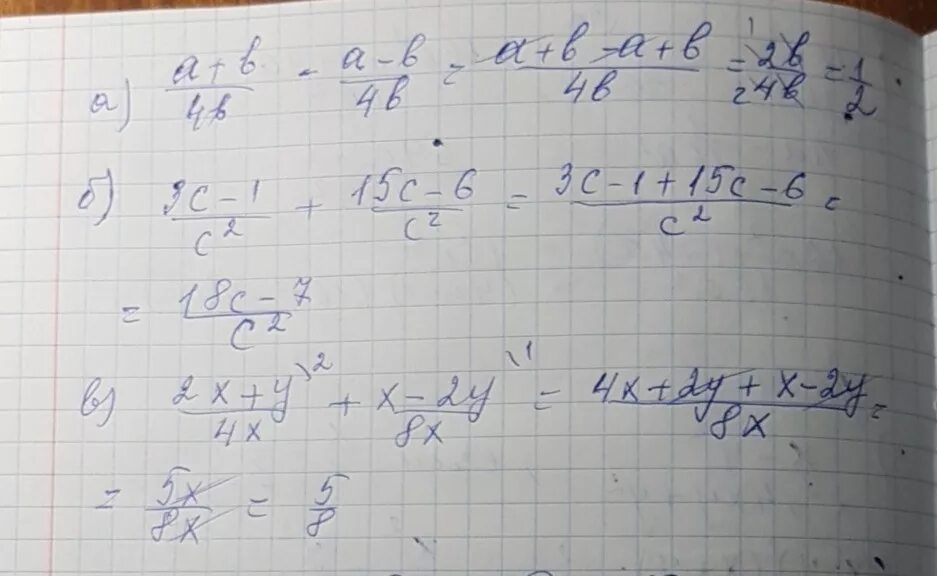 а) (a+b)/(4b) - (a-b)/(4b) = (a+b-a+b)/(4b) = (¹2b)/(₂4b) = 1/2.
б) (3c-1)/c² + (15c-6)/c² = (3c-1+15c-6)/c² =
= (18c-7)/c²
в) (2x+y)\²/(4x) + (x-2y)\¹/(8x) = (4x+2y+x-2y)/(8x) =
= 5x/8x = 5/8